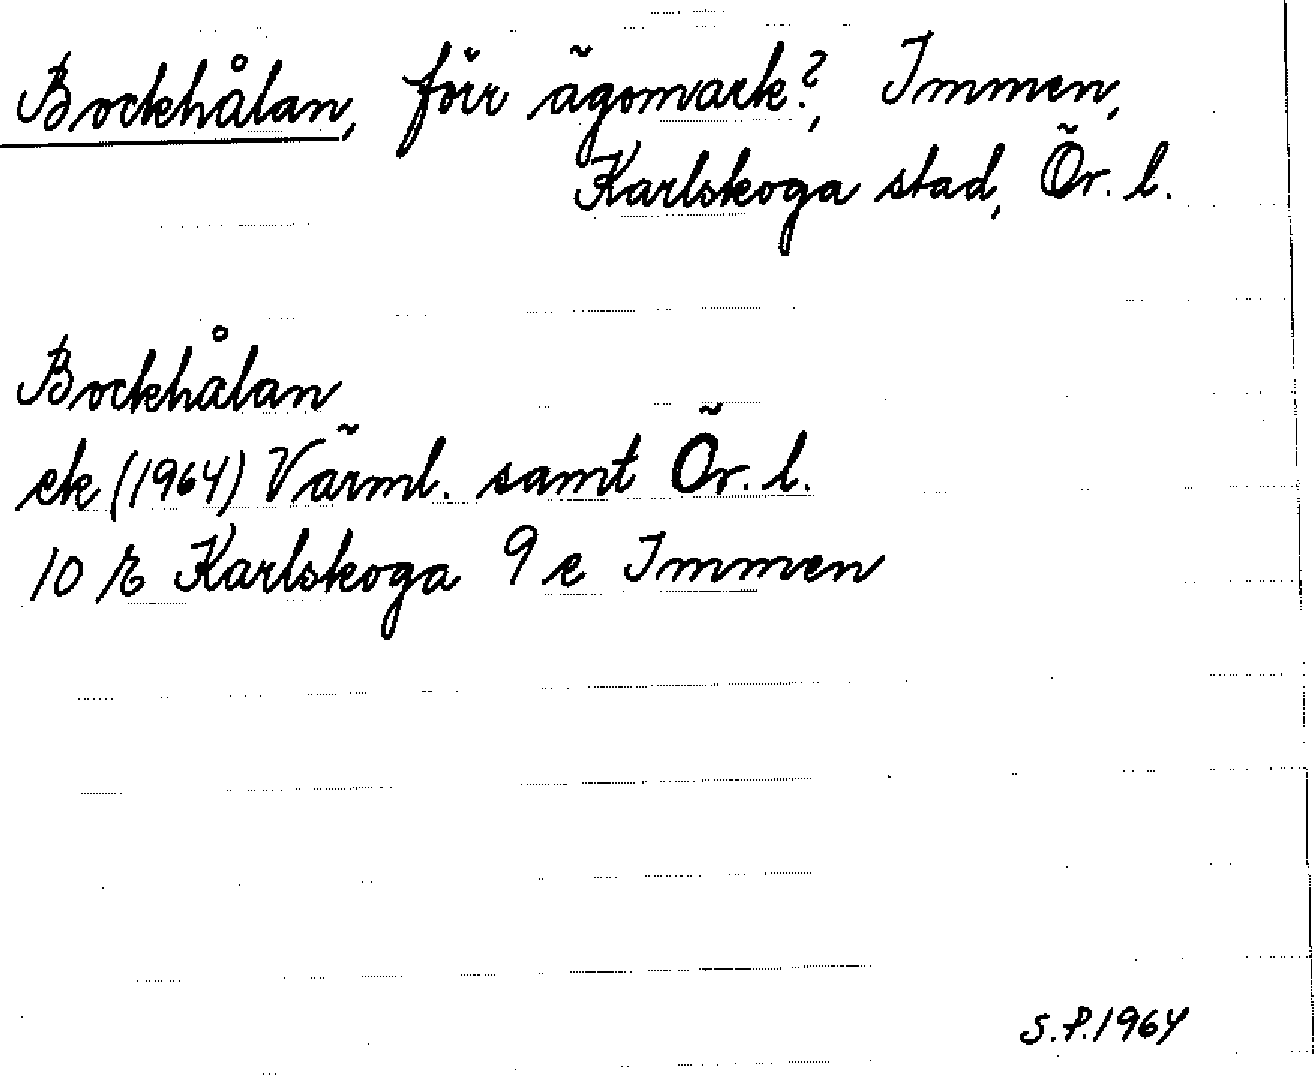 Bockhålan, förr ägomark?, Immen,
Karlskoga stad, Ör. l.
Bockhålan
ek (1964) Värml. samt Ör. l.
10 E Karlskoga 9 e Immen
S.P. 1964